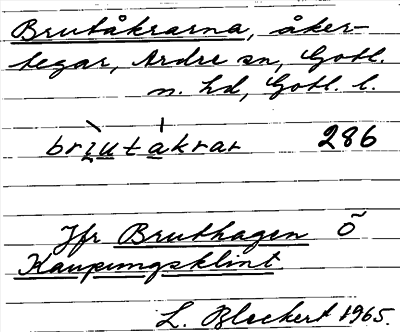 Brutåkrarna, åker-
tegar, Ardre sn, Gotl.
n. hd, Gotl. l.
brɩutakrar 286
Jfr Bruthagen Õ
Kaupungsklint
L. Bleckert 1965.